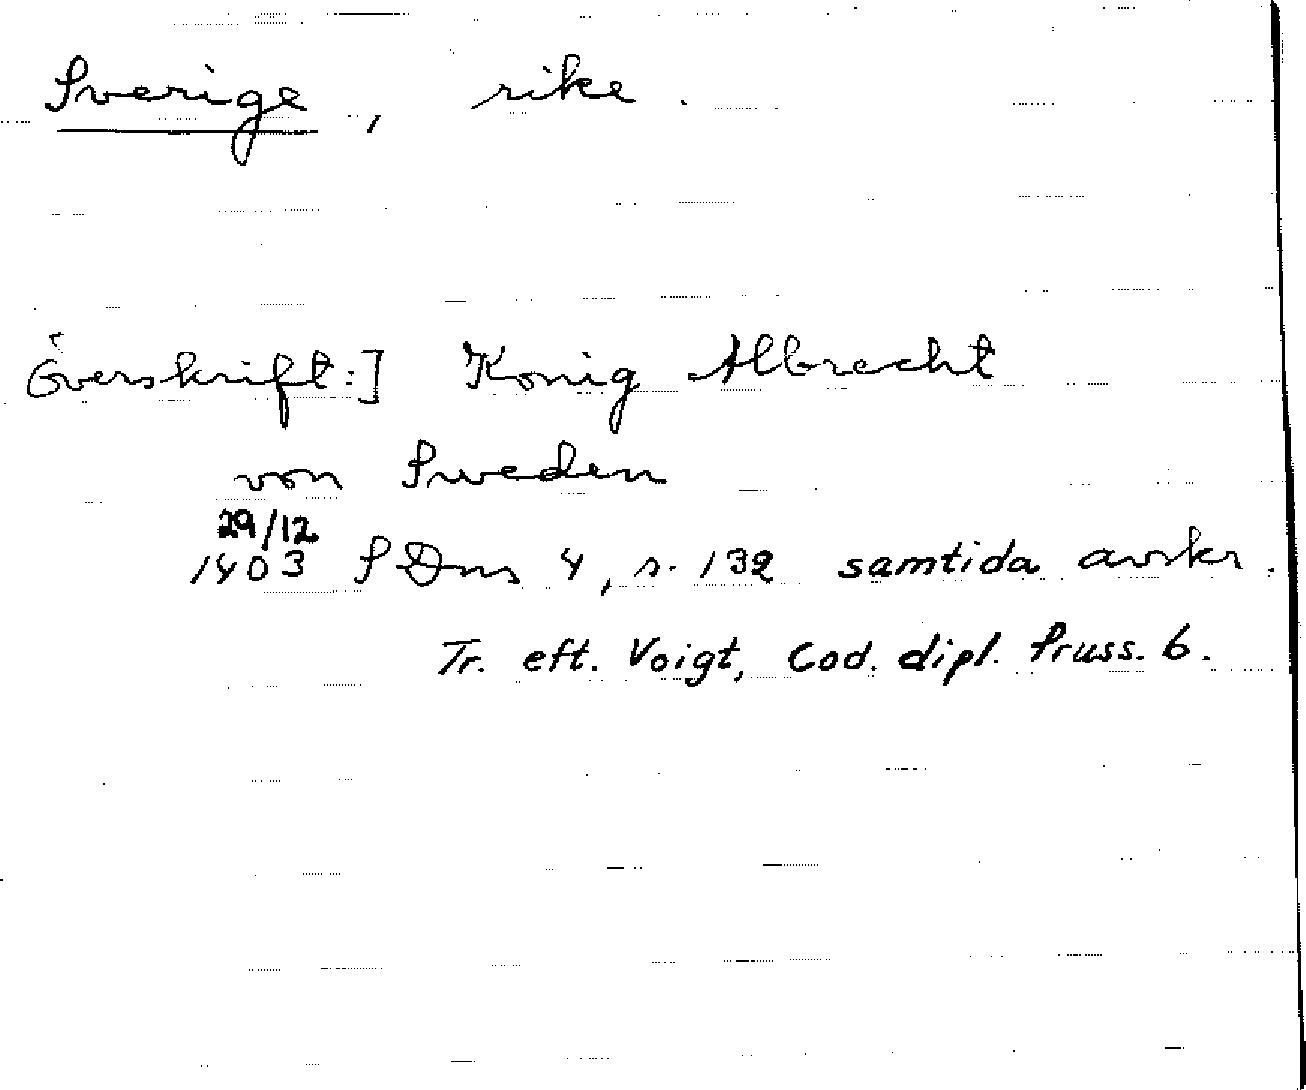 Sverige, rike.
Överskrift:] König Albrecht
von Sweden
29/12
1403 SDns 4, s. 132 samtida avskr.
Tr. eft. Voigt, Cod. dipl. Pruss. 6.